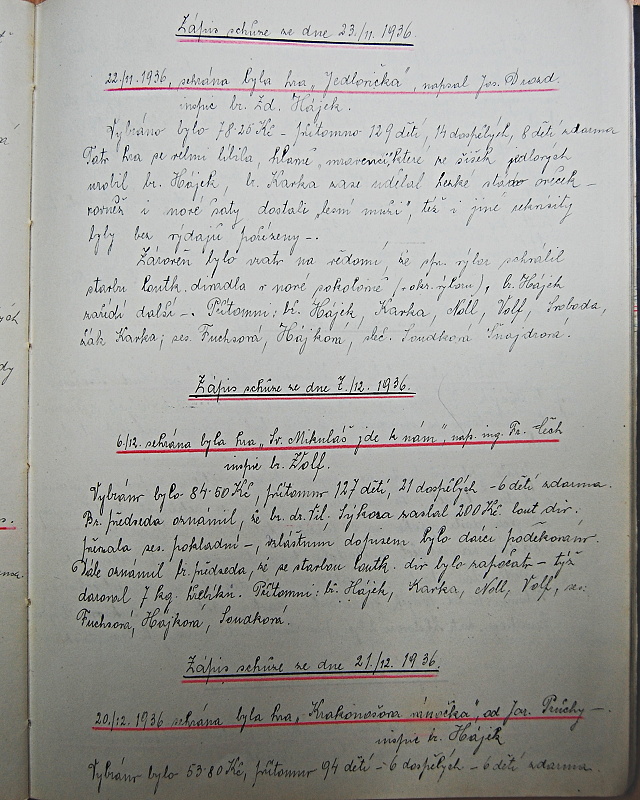 Zápis schůze ze dne 23./11. 1936.
22./11. 1936, sehrána byla hra „Jedlovička“, napsal Jos. Drozd.
inspic br. Zd. Hájek.
Vybráno bylo 78·20 Kč – přítomno 129 dětí, 14 dospělých, 8 dětí zdarma
Tato hra se velmi líbila, hlavně „mravenci“, které ze šišek jedlových
urobil br. Hájek, br. Karka zase udělal hezké stádo oveček –
rovněž i nové šaty dostali „lesní muži“, též i jiné rekvisity
byly bez výdajů pořízeny –.
Zároveň bylo vzato na vědomí, že výbor schválil
stavbu loutk. divadla v nové sokolovně /okr. výboru/, br. Hájek
zařídí další –. Přítomni: bř. Hájek, Karka, Noll, Volf, Svoboda,
žák Karka; ses. Fuchsová, Hájková, sleč. Soudková Šnajdrová.
Zápis schůze ze dne 7./12. 1936.
6/12. sehrána byla hra „Sv. Mikuláš jde k nám“, nap. ing. Fr. Čech
inspic br. Volf.
Vybráno bylo 84·50 Kč, přítomno 127 dětí, 21 dospělých – 6 dětí zdarma.
Br. předseda oznámil, že br. dr. Vil. Sýkora zaslal 200 Kč lout. div.
převzala ses. pokladní –, zvláštním dopisem bylo dárci poděkováno.
Dále oznámil br. předseda, že se stavbou loutk. div bylo započato – týž
daroval 7 kg. hřebíků. Přítomni: bř. Hájek, Karka, Noll, Volf, ses:
Fuchsová, Hájková, Soudková.
Zápis schůze ze dne 21./12. 1936.
20./12. 1936 sehrána byla hra „Krakonošova vánočka“, od Jar. Průchy –
inspic br. Hájek
Vybráno bylo 53·80 Kč, přítomno 94 dětí – 6 dospělých – 6 dětí zdarma.